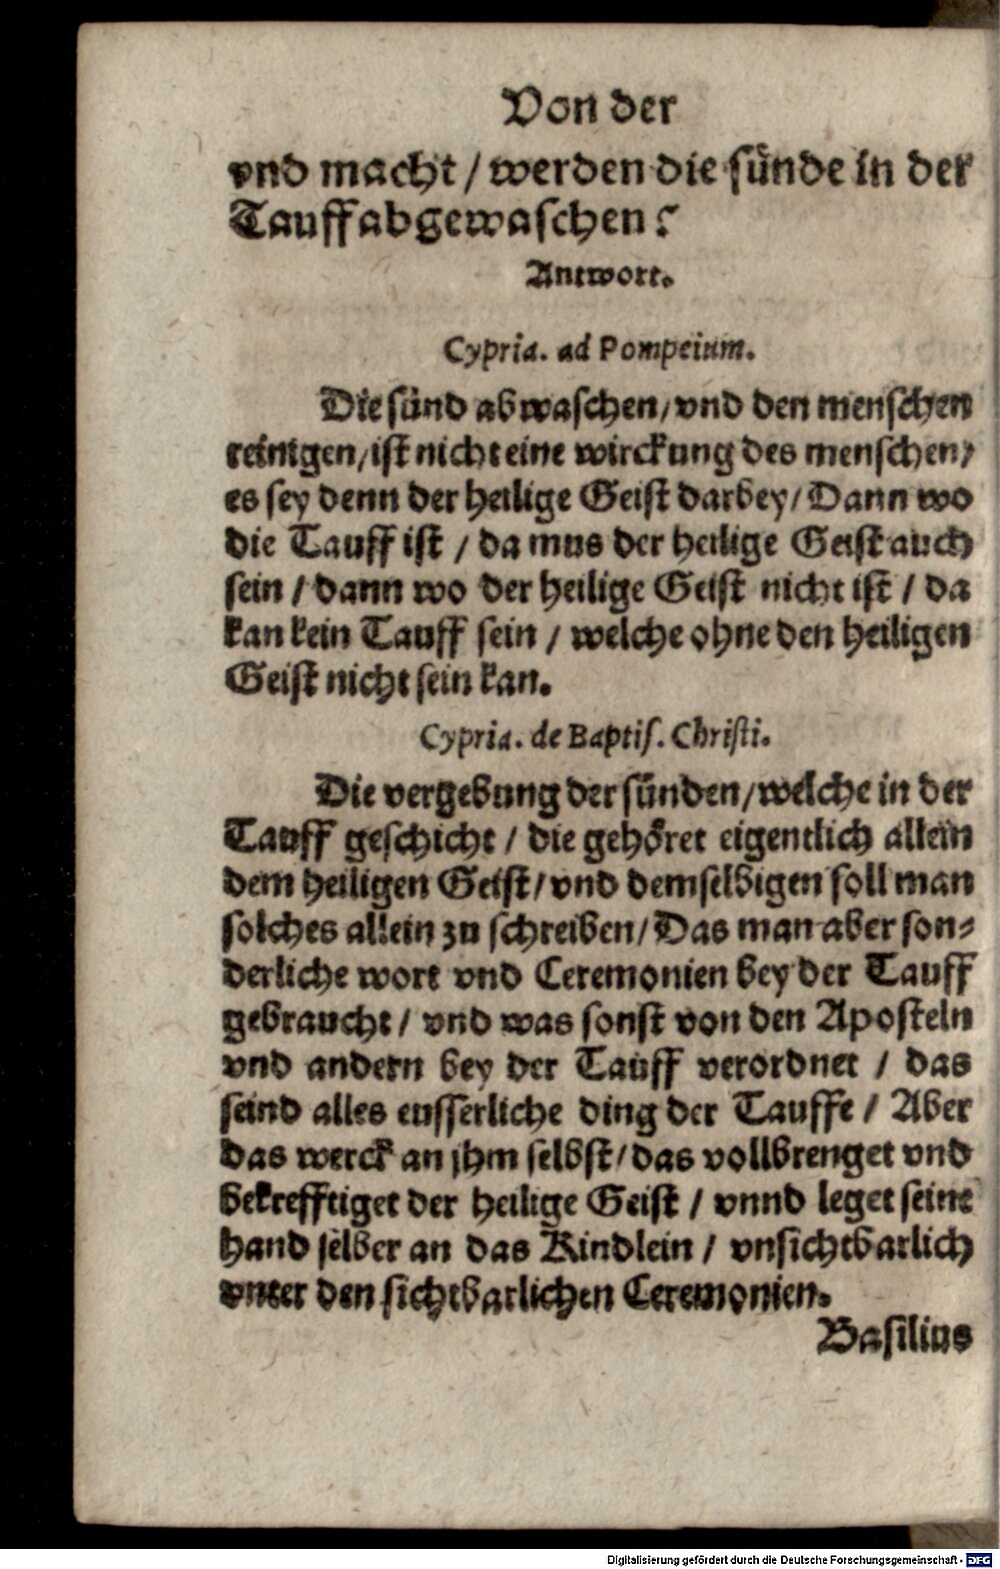 Von der
vnd macht / werden die sünde in der
Tauff abgewaschen?
Antwort.
Cypria. ad Pompeium.
Die sünd abwaschen / vnd den menschen
reinigen / ist nicht eine wirckung des menschen /
es sey denn der heilige Geist darbey / Dann wo
die Tauff ist / da mus der heilige Geist auch
sein / dann wo der heilige Geist nicht ist / da
kan kein Tauff sein / welche ohne den heiligen
Geist nicht sein kan.
Cypria. de Baptis. Christi.
Die vergebung der sünden / welche in der
Tauff geschicht / die gehöret eigentlich allein
dem heiligen Geist / vnd demselbigen soll man
solches allein zu schreiben / Das man aber son⸗
derliche wort vnd Ceremonien bey der Tauff
gebraucht / vnd was sonst von den Aposteln
vnd andern bey der Tauff verordnet / das
seind alles eusserliche ding der Tauffe / Aber
das werck an jhm selbst / das vollbrenget vnd
bekrefftiget der heilige Geist / vnnd leget seine
hand selber an das Kindlein / vnsichtbarlich
vnter den sichtbarlichen Ceremonien.
Basilius
Digitalisierung gefördert durch die Deutsche Forschungsgemeinschaft - DFG